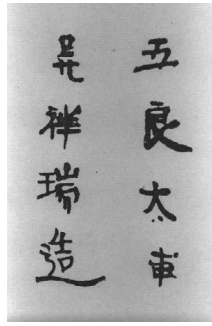 五良太甫
呉祥瑞造